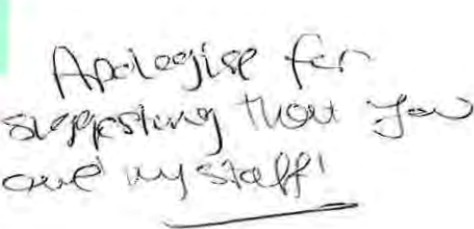 Apologise for
suggesting that you
and my staff!